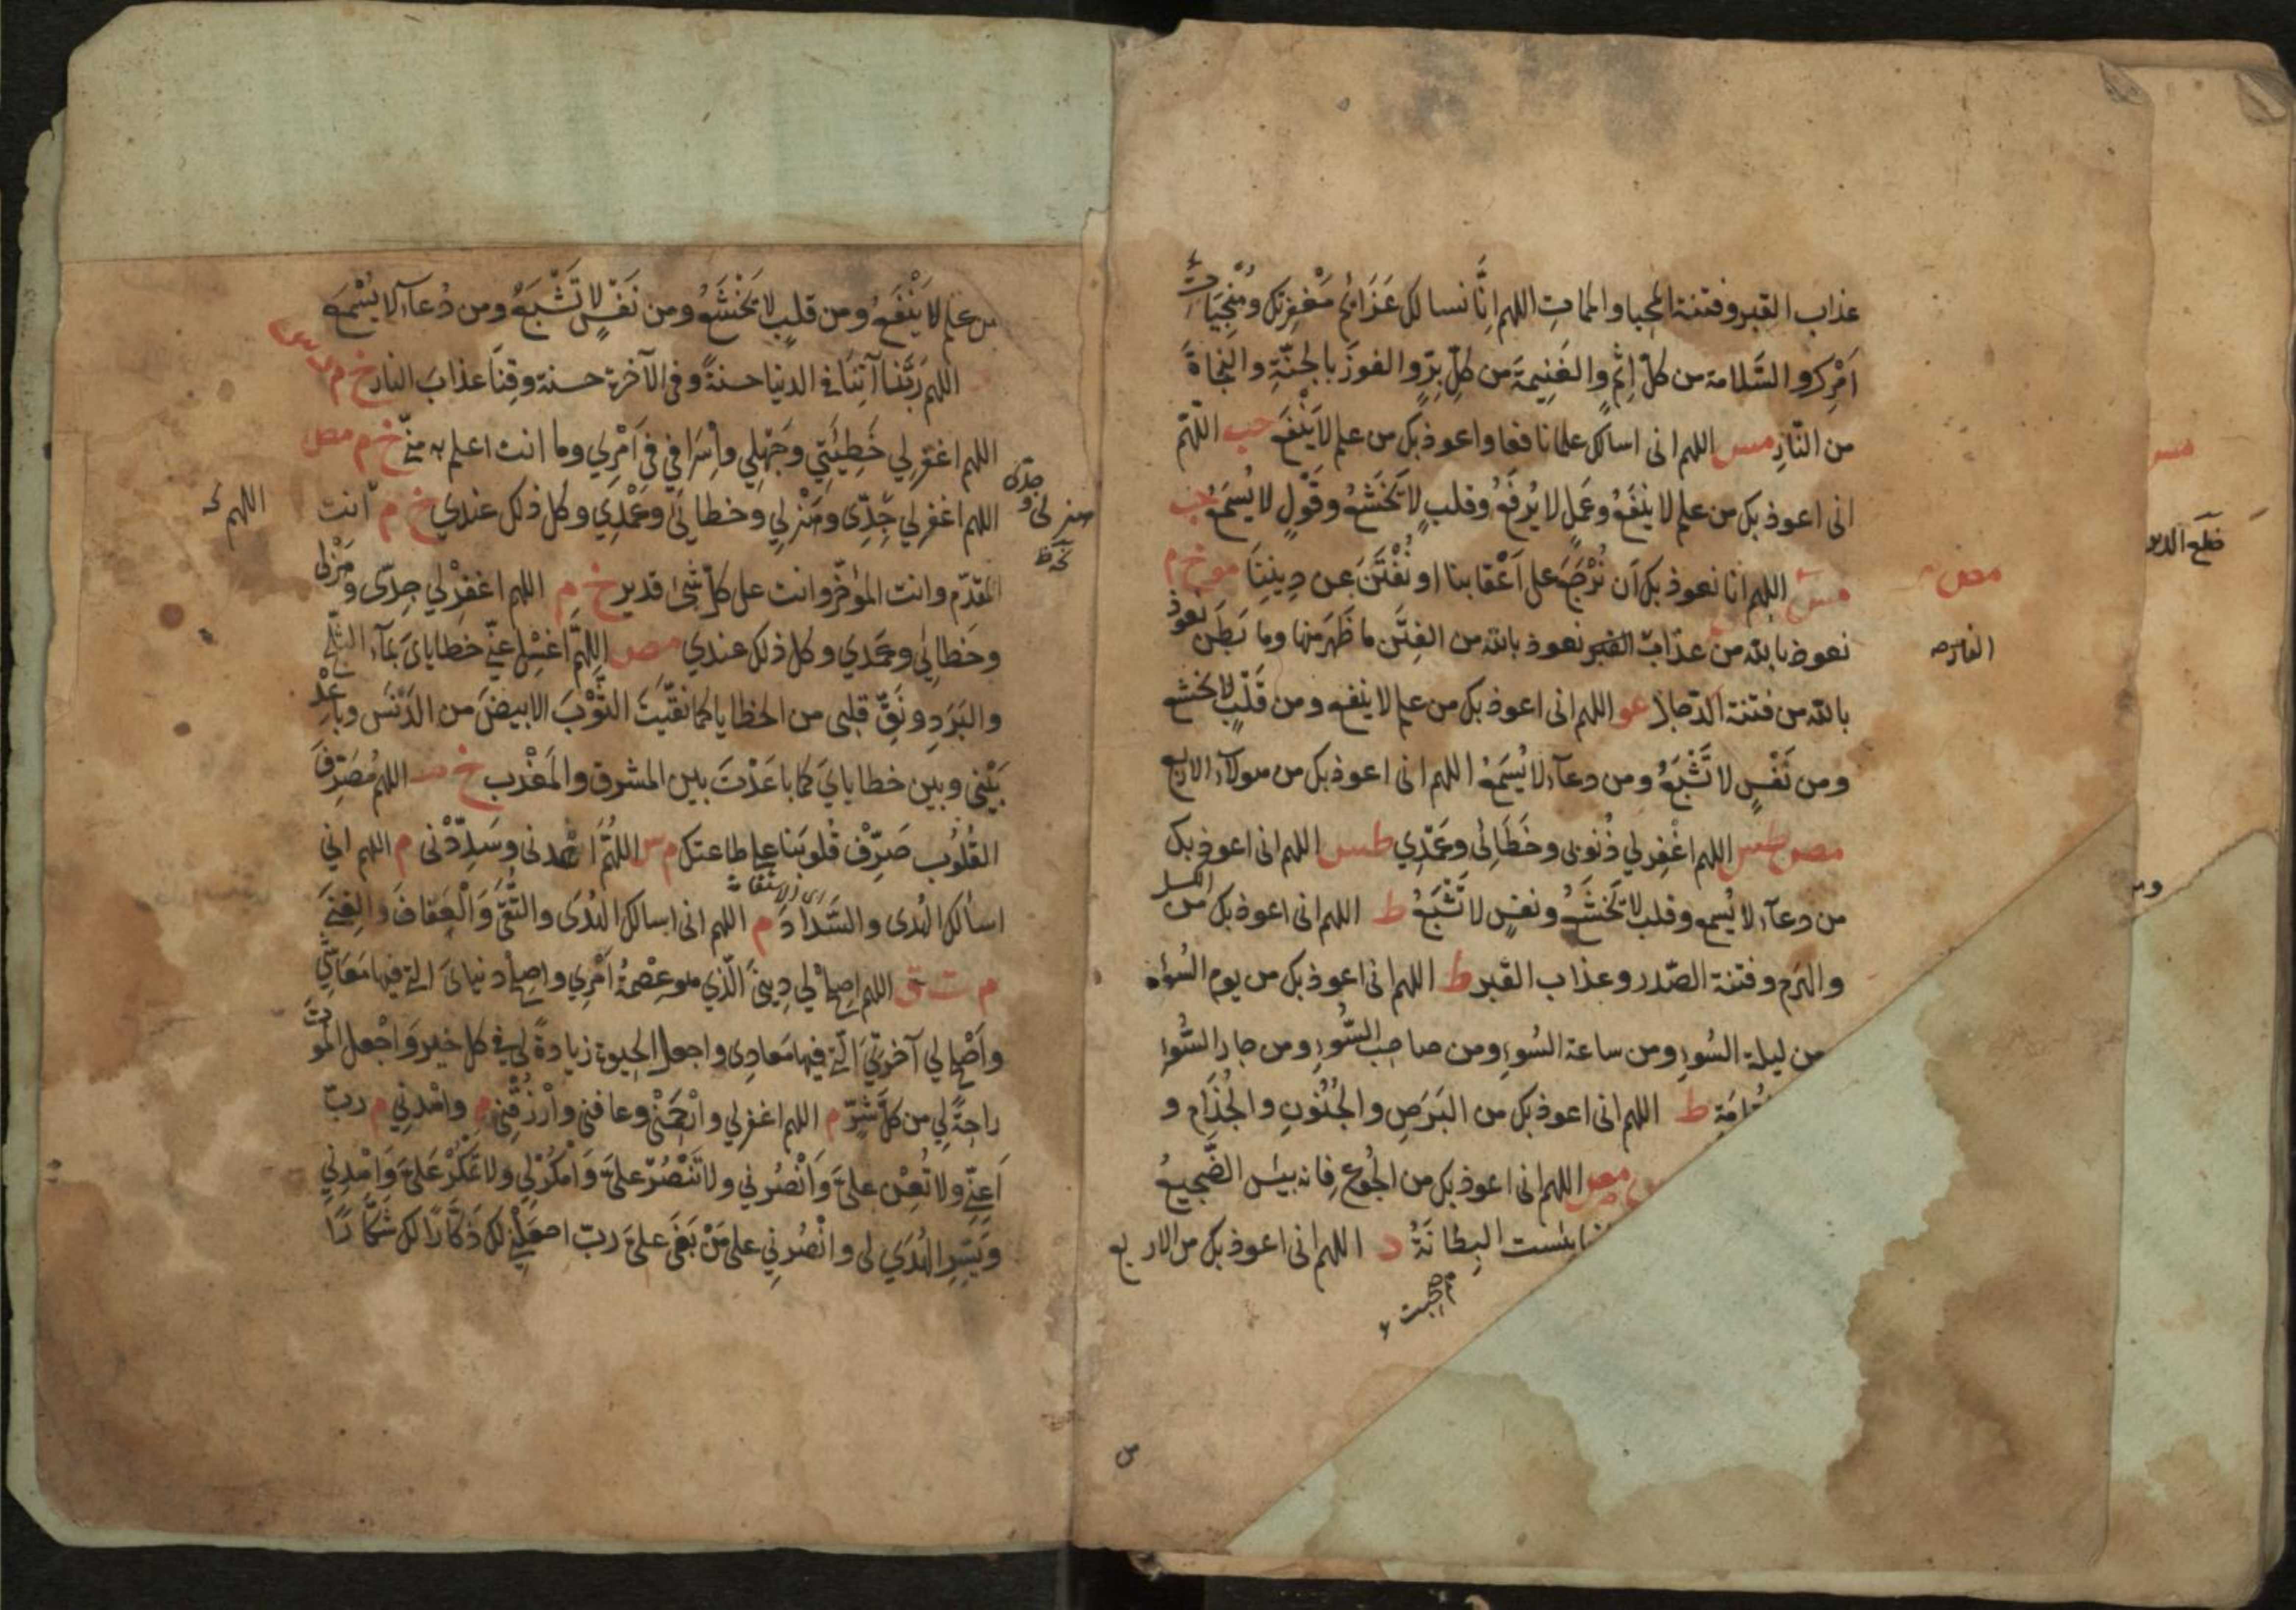 عذاب القبر وفتنة المحيا والممات اللهم انا نسالك عزائم مغفرتك ومنجيات
امرك والسلامة من كل اثم والغنيمة من كل بر والفوز بالجنة والنجاة
من النار مس اللهم انى اسالك علما نافعا واعوذ بك من علم لا ينفع حب اللهم
انى اعوذ بك من علم لا ينفع وعمل لا يرفع وقلب لا يخشع وقول لا يسمع حب
مس اللهم انا نعوذ بك ان نرجع على اعقابنا او نفتن عن ديننا مو خ م
نعوذ بالله من عذاب القبر نعوذ بالله من الفتن ما ظهر منها وما بطن نعوذ
بالله من فتنة الدجال عو اللهم انى اعوذ بك من علم لا ينفع ومن قلب لا يخشع
ومن نفس لا تشبع ومن دعاء لا يسمع اللهم انى اعوذ بك من هولاء الاربع
مص طس اللهم اغفر لي ذنوبى وخطائى وعمدي طس اللهم انى اعوذ بك
من دعاء لا يسمع وقلب لا يخشع ونفس لا تشبع ط اللهم انى اعوذ بك من الكسل
والهرم وفتنة الصدر وعذاب القبر ط اللهم انى اعوذ بك من يوم السوء
من ليلة السوء ومن ساعة السوء ومن صاحب السوء ومن جار السوء
ط اللهم انى اعوذ بك من البرص والجنون والجذام و
مص اللهم انى اعوذ بك من الجوع فانه بيس الضجيع
بئست البطانة د اللهم انى اعوذ بك من الاربع
مص
من علم لا ينفع ومن قلب لا يخشع ومن نفس لا تشبع ومن دعاء لا يسمع
اللهم ربنا آتنا فى الدنيا حسنة وفى الآخرة حسنة وقنا عذاب النار خ م د س
اللهم اغفر لي خطيئتي وجهلي واسرافي فى امري وما انت اعلم به منى خ م مص
اللهم اغفر لي جدى وهزلي وخطائي وعمدي وكل ذلك عندي خ م انت
المقدم وانت المؤخر وانت على كل شئ قدير خ م اللهم اغفر لي جدى وهزلى
وخطائي وعمدي وكل ذلك عندي مص اللهم اغسل عني خطاياى بماء الثلج
والبرد ونق قلبى من الخطايا كما نقيت الثوب الابيض من الدنس وباعد
بيني وبين خطاياي كما باعدت بين المشرق والمغرب خ اللهم مصرف
القلوب صرف قلوبنا على طاعتك م س اللهم اهدنى وسددنى م اللهم اني
اسألك الهدى والسداد م اللهم انى اسالك الهدى والتقى والعفاف والغنى
م ت ق اللهم اصلح لي ديني الذي هو عصمة امري واصلح دنياى التى فيها معاشي
واصلح لي آخرتي التى فيها معادى واجعل الحيوة زيادة لي فى كل خير واجعل الموت
راحة لي من كل شر م اللهم اغفر لي وارحمنى وعافنى وارزقنى م واهدني م رب
اعني ولا تعن علي وانصرني ولا تنصر علي وامكر لي ولا تمكر علي واهدني
ويسر الهدي لى وانصرني على من بغى علي رب اجعلنى لك ذكارا لك شكارا
اللهم